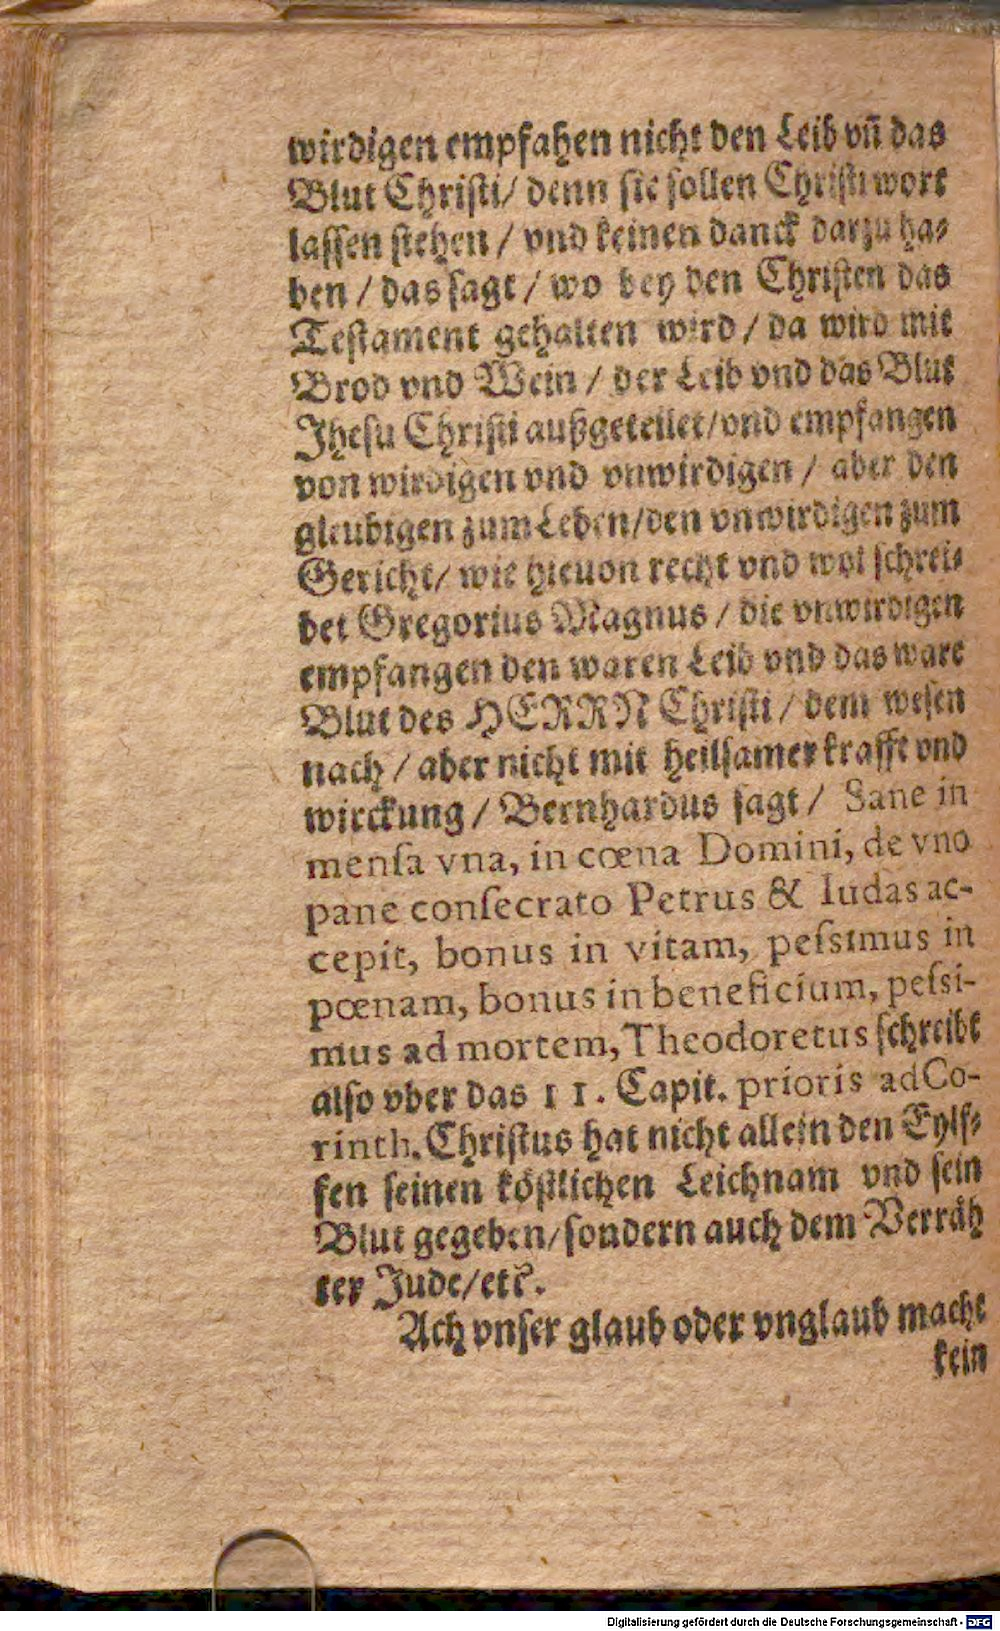 wirdigen empfahen nicht den Leib vñ das
Blut Christi/ denn sie sollen Christi wort
lassen stehen / vnd keinen danck darzu ha-
ben / das sagt / wo bey den Christen das
Testament gehalten wird / da wird mit
Brod vnd Wein / der Leib vnd das Blut
Jhesu Christi außgeteilet/vnd empfangen
von wirdigen vnd vnwirdigen / aber den
gleubigen zum Leben/den vnwirdigen zum
Gericht/ wie hieuon recht vnd wol schrei-
bet Gregorius Magnus / die vnwirdigen
empfangen den waren Leib vnd das ware
Blut des HERRN Christi / dem wesen
nach / aber nicht mit heilsamer krafft vnd
wirckung / Bernhardus sagt / Sane in
menſa vna, in cœna Domini, de vno
pane conſecrato Petrus & Iudas ac-
cepit, bonus in vitam, peſsimus in
pœnam, bonus in beneficium, peſsi-
mus ad mortem, Theodoretus schreibt
also vber das 11. Capit. prioris ad Co-
rinth. Christus hat nicht allein den Eylf-
fen seinen köstlichen Leichnam vnd sein
Blut gegeben/sondern auch dem Verräh
ter Jude/etc.
Ach vnser glaub oder vnglaub macht
kein
Digitalisierung gefördert durch die Deutsche Forschungsgemeinschaft - DFG